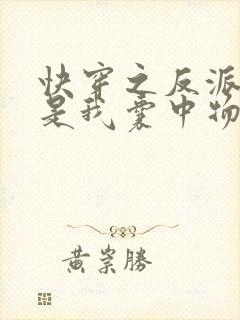 快穿之反派
是我囊中物
黄崇勝